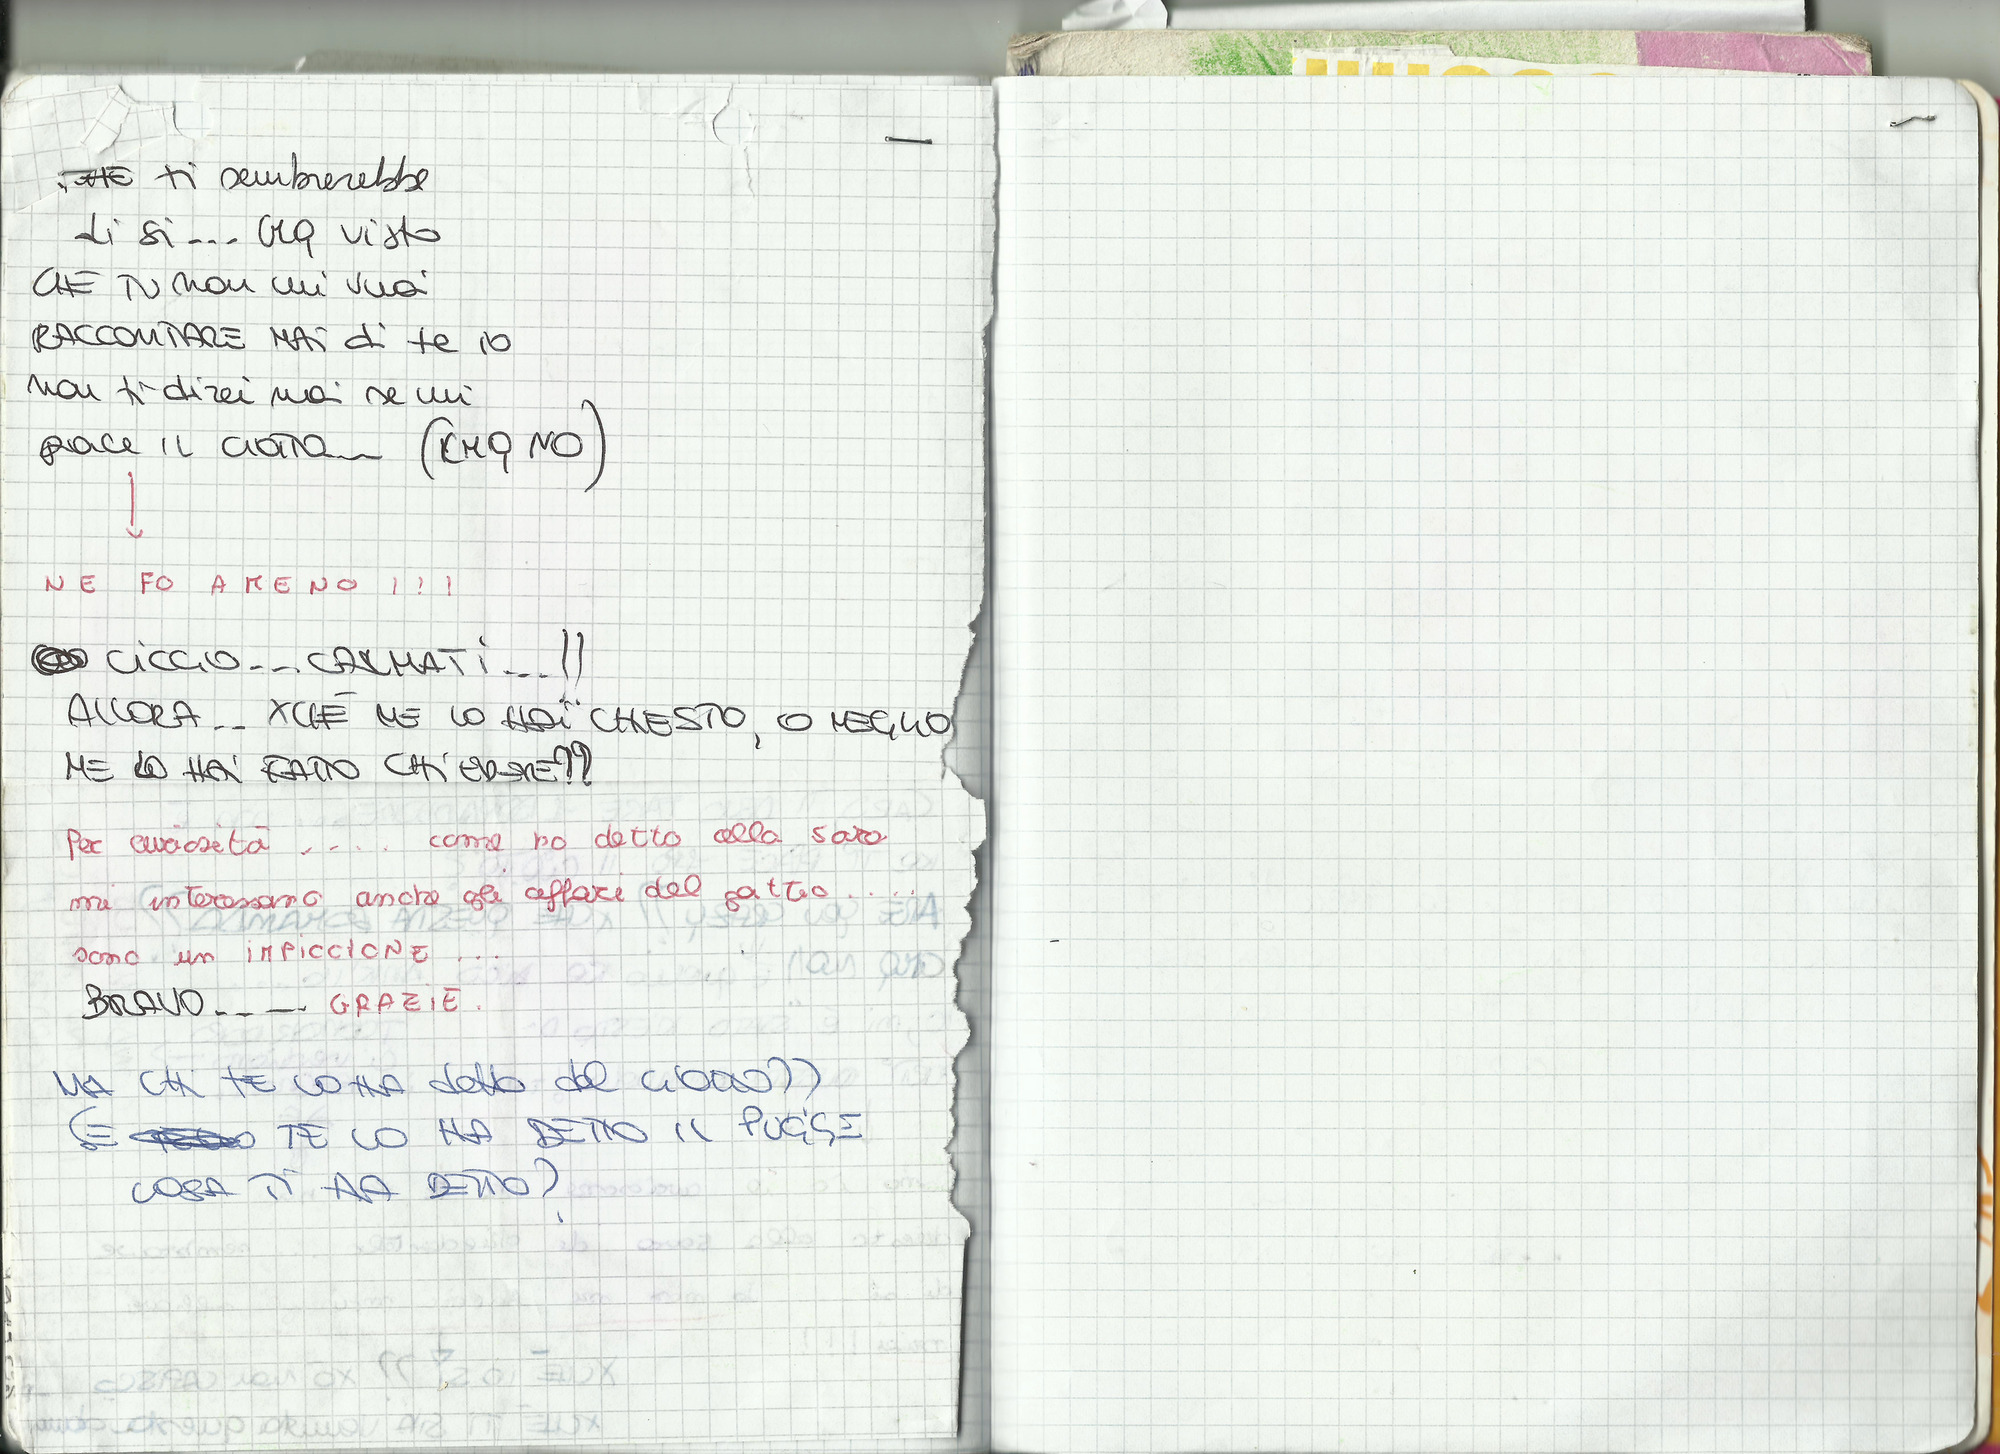 ti sembrerebbe
di si... CMQ visto
CHE TU non mi vuoi
RACCONTARE MAi di te io
non ti direi mai se mi
piace il CIOTTO... (CMQ NO)
NE FO AMENO!!!
CICCIO... CALMATI...!!
ALLORA... XCHÉ ME LO HAI CHIESTO, O MEGLIO
ME LO HAI FATTO CHIEDERE??
Per curiosità .... come ho detto alla sara
mi interessano anche gli affari del gatto .....
sono un IMPICCIONE ...
BRAVO..... GRAZIE.
MA CHI TE LO HA detto del
SE TE LO HA DETTO IL PUGISE
COSA TI HA DETTO?